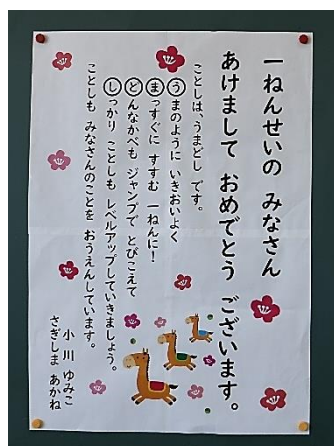 一ねんせいの みなさん
あけまして おめでとう ございます。
ことしは、うまどし です。
うまのように いきおいよく
まっすぐに すすむ 一ねんに！
どんなかべも ジャンプで とびこえて
しっかり ことしも レベルアップしていきましょう。
ことしも みなさんのことを おうえんしています。
小川 ゆみこ
さぎしま あかね